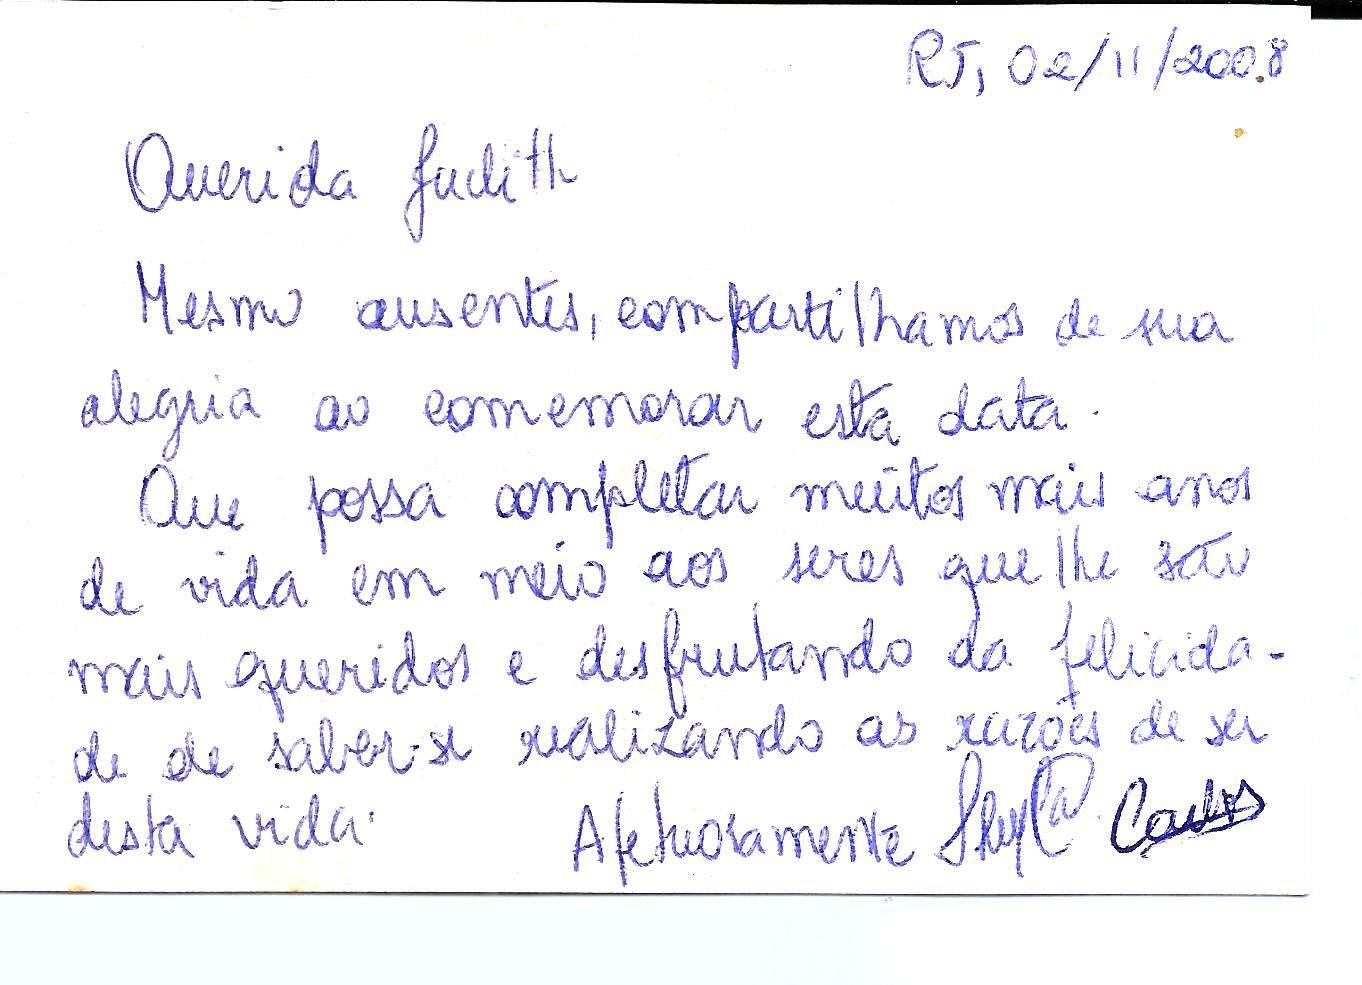 RJ, 02/11/2008
Querida Judith
Mesmo ausentes, compartilhamos de sua
alegria ao comemorar esta data.
Que possa completar muitos mais anos
de vida em meio aos seres que lhe são
mais queridos e desfrutando da felicida-
de de saber-se realizando as razões de ser
desta vida.
Afetuosamente Sheyla Carlos